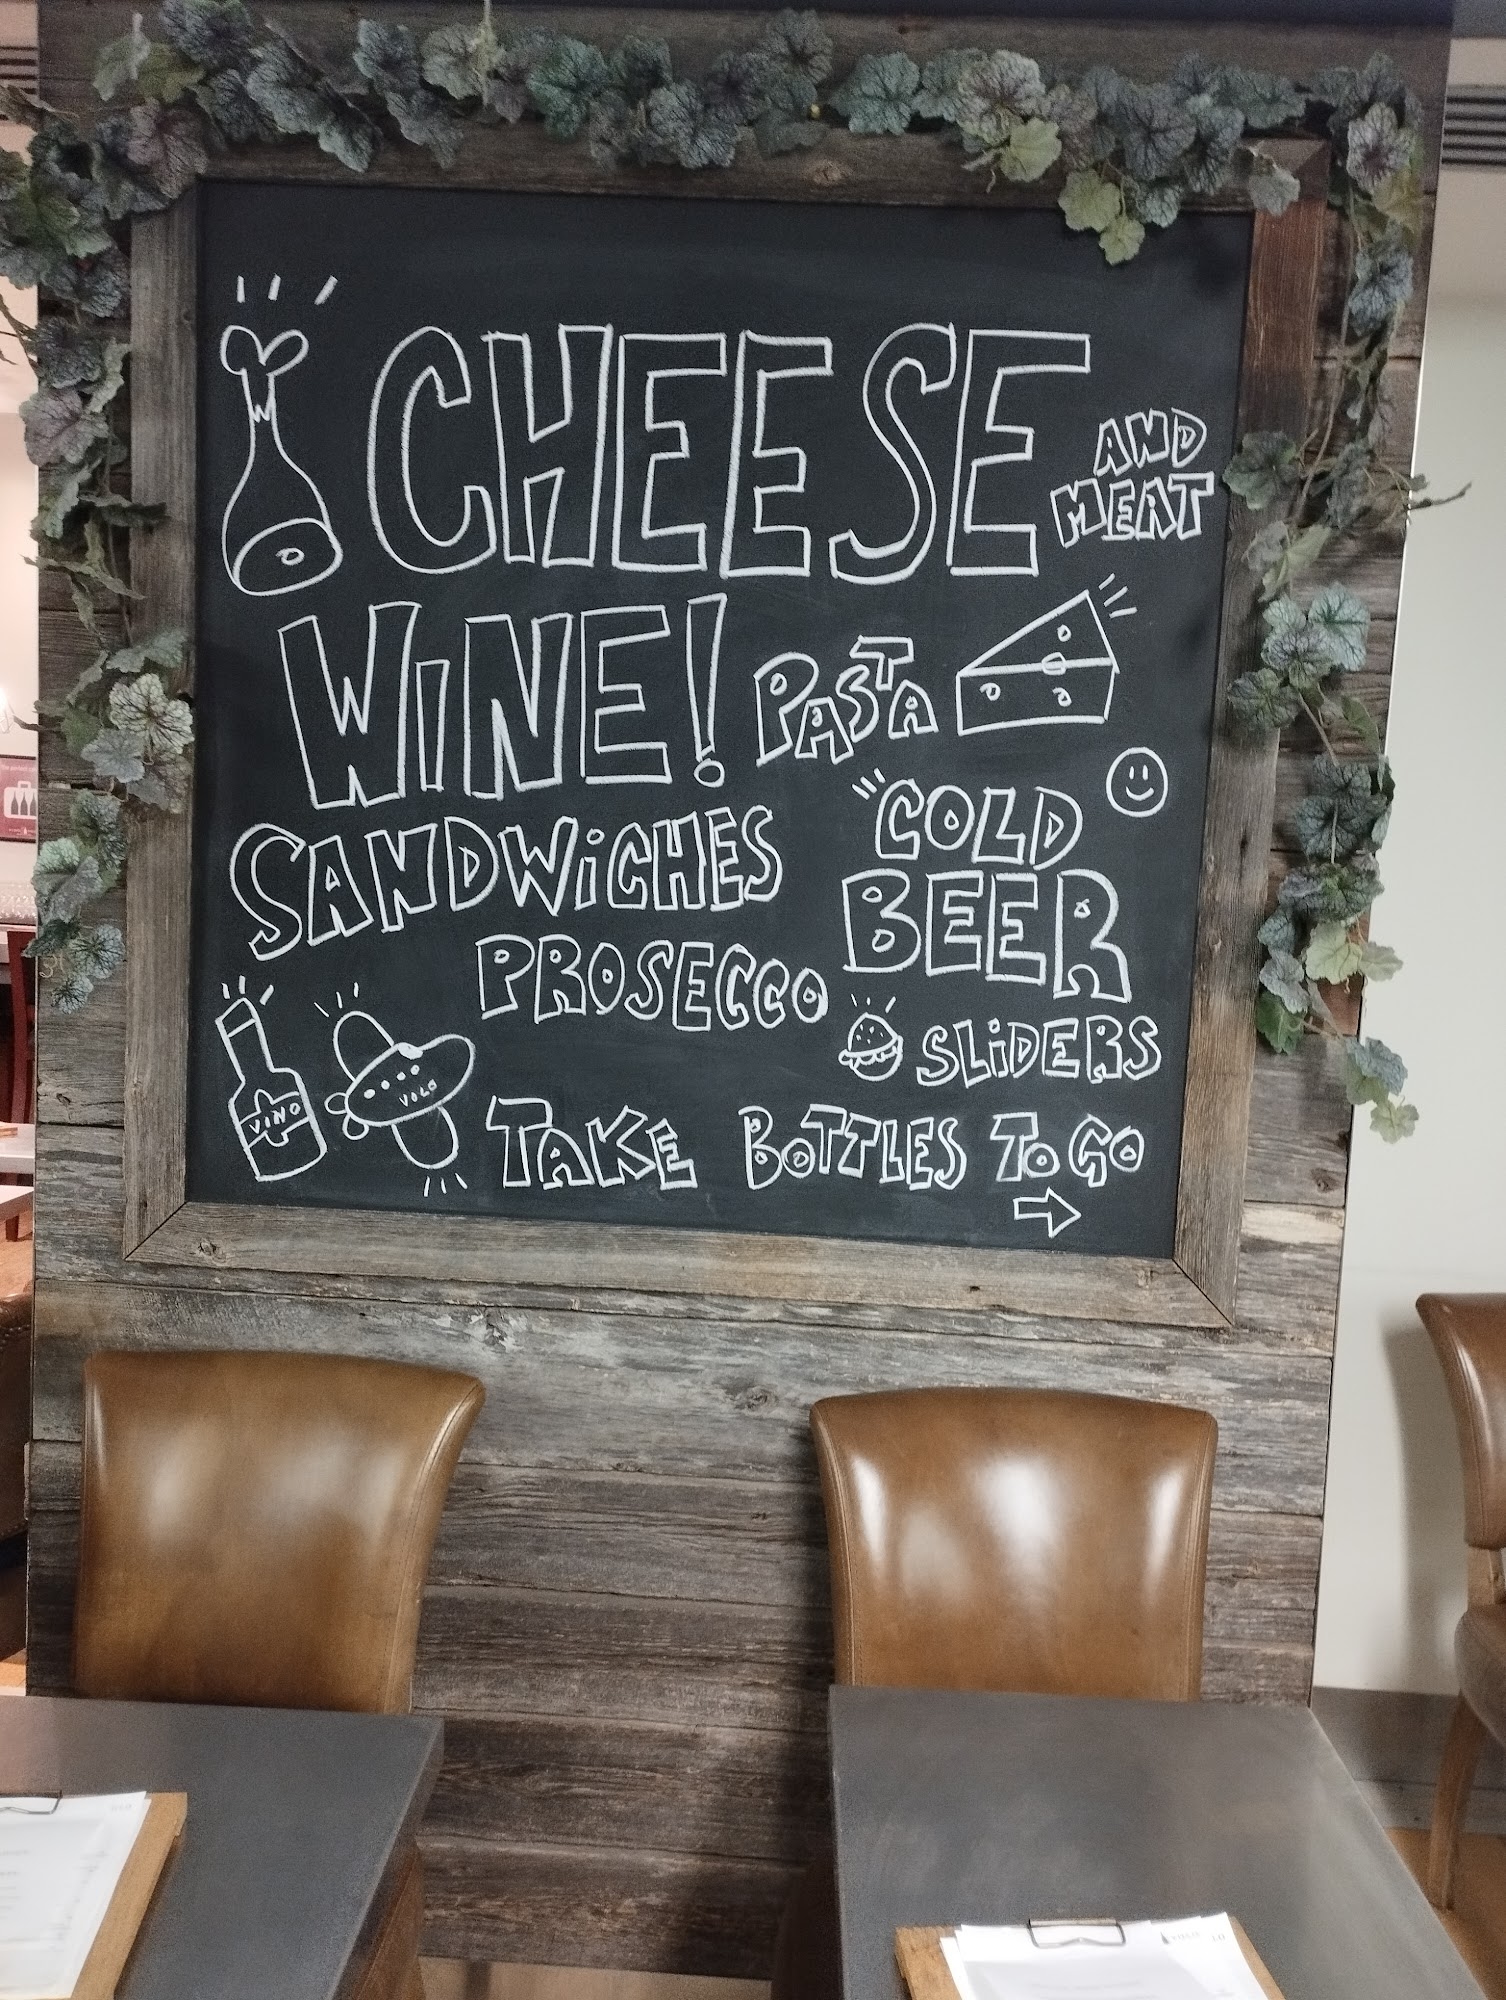 CHEESE
AND
MEAT
WINE!
PASTA
COLD
BEER
SANDWICHES
PROSECCO
SLIDERS
VINO
VOLO
TAKE BOTTLES TO GO